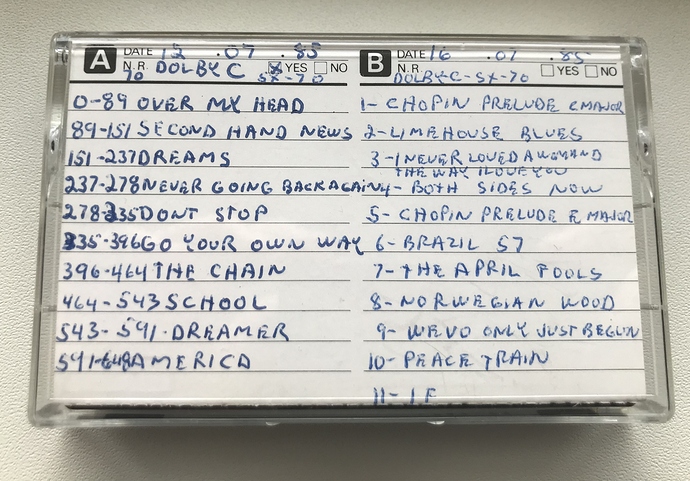 A DATE 12 .07 .85
N.R. DOLBY C YES NO
70 SX-70
0-89 OVER MY HEAD
89-151 SECOND HAND NEWS
151-237 DREAMS
237-278 NEVER GOING BACK AGAIN
278-335 DONT STOP
335-396 GO YOUR OWN WAY
396-464 THE CHAIN
464-543 SCHOOL
543-591 · DREAMER
591-648 AMERICA
B DATE 16 .07 .85
N.R. YES NO
DOLBY C-SX-70
1- CHOPIN PRELUDE C MAJOR
2- LIMEHOUSE BLUES
3-I NEVER LOVED A WOMAN D
THE WAY I LOVE YOU
4- BOTH SIDES NOW
5- CHOPIN PRELUDE E MAJOR
6- BRAZIL 57
7- THE APRIL FOOLS
8- NORWEGIAN WOOD
9- WEVO ONLY JUST BEGUN
10- PEACE TRAIN
11- IF